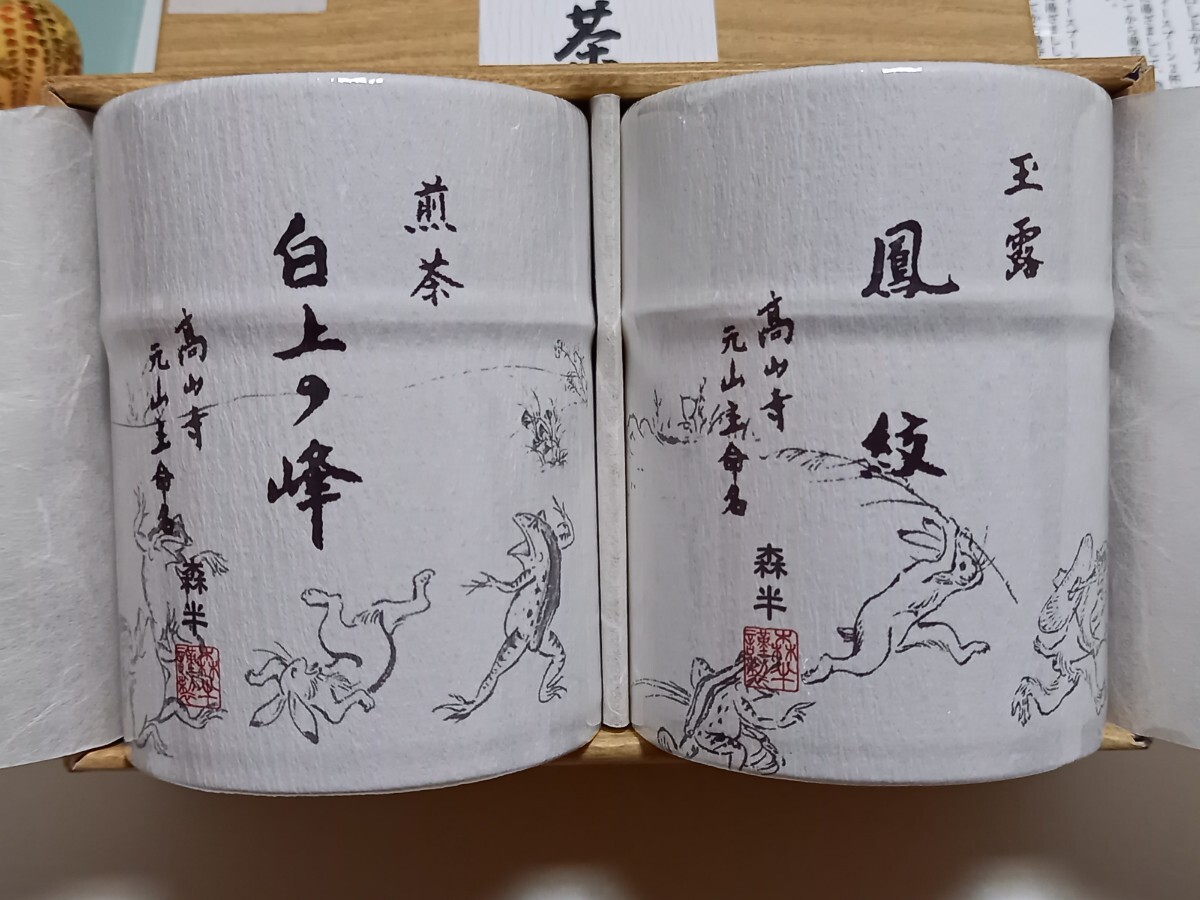 茶
煎茶
白上の峰
高山寺
元山主命名
森半
玉露
鳳紋
高山寺
元山主命名
森半